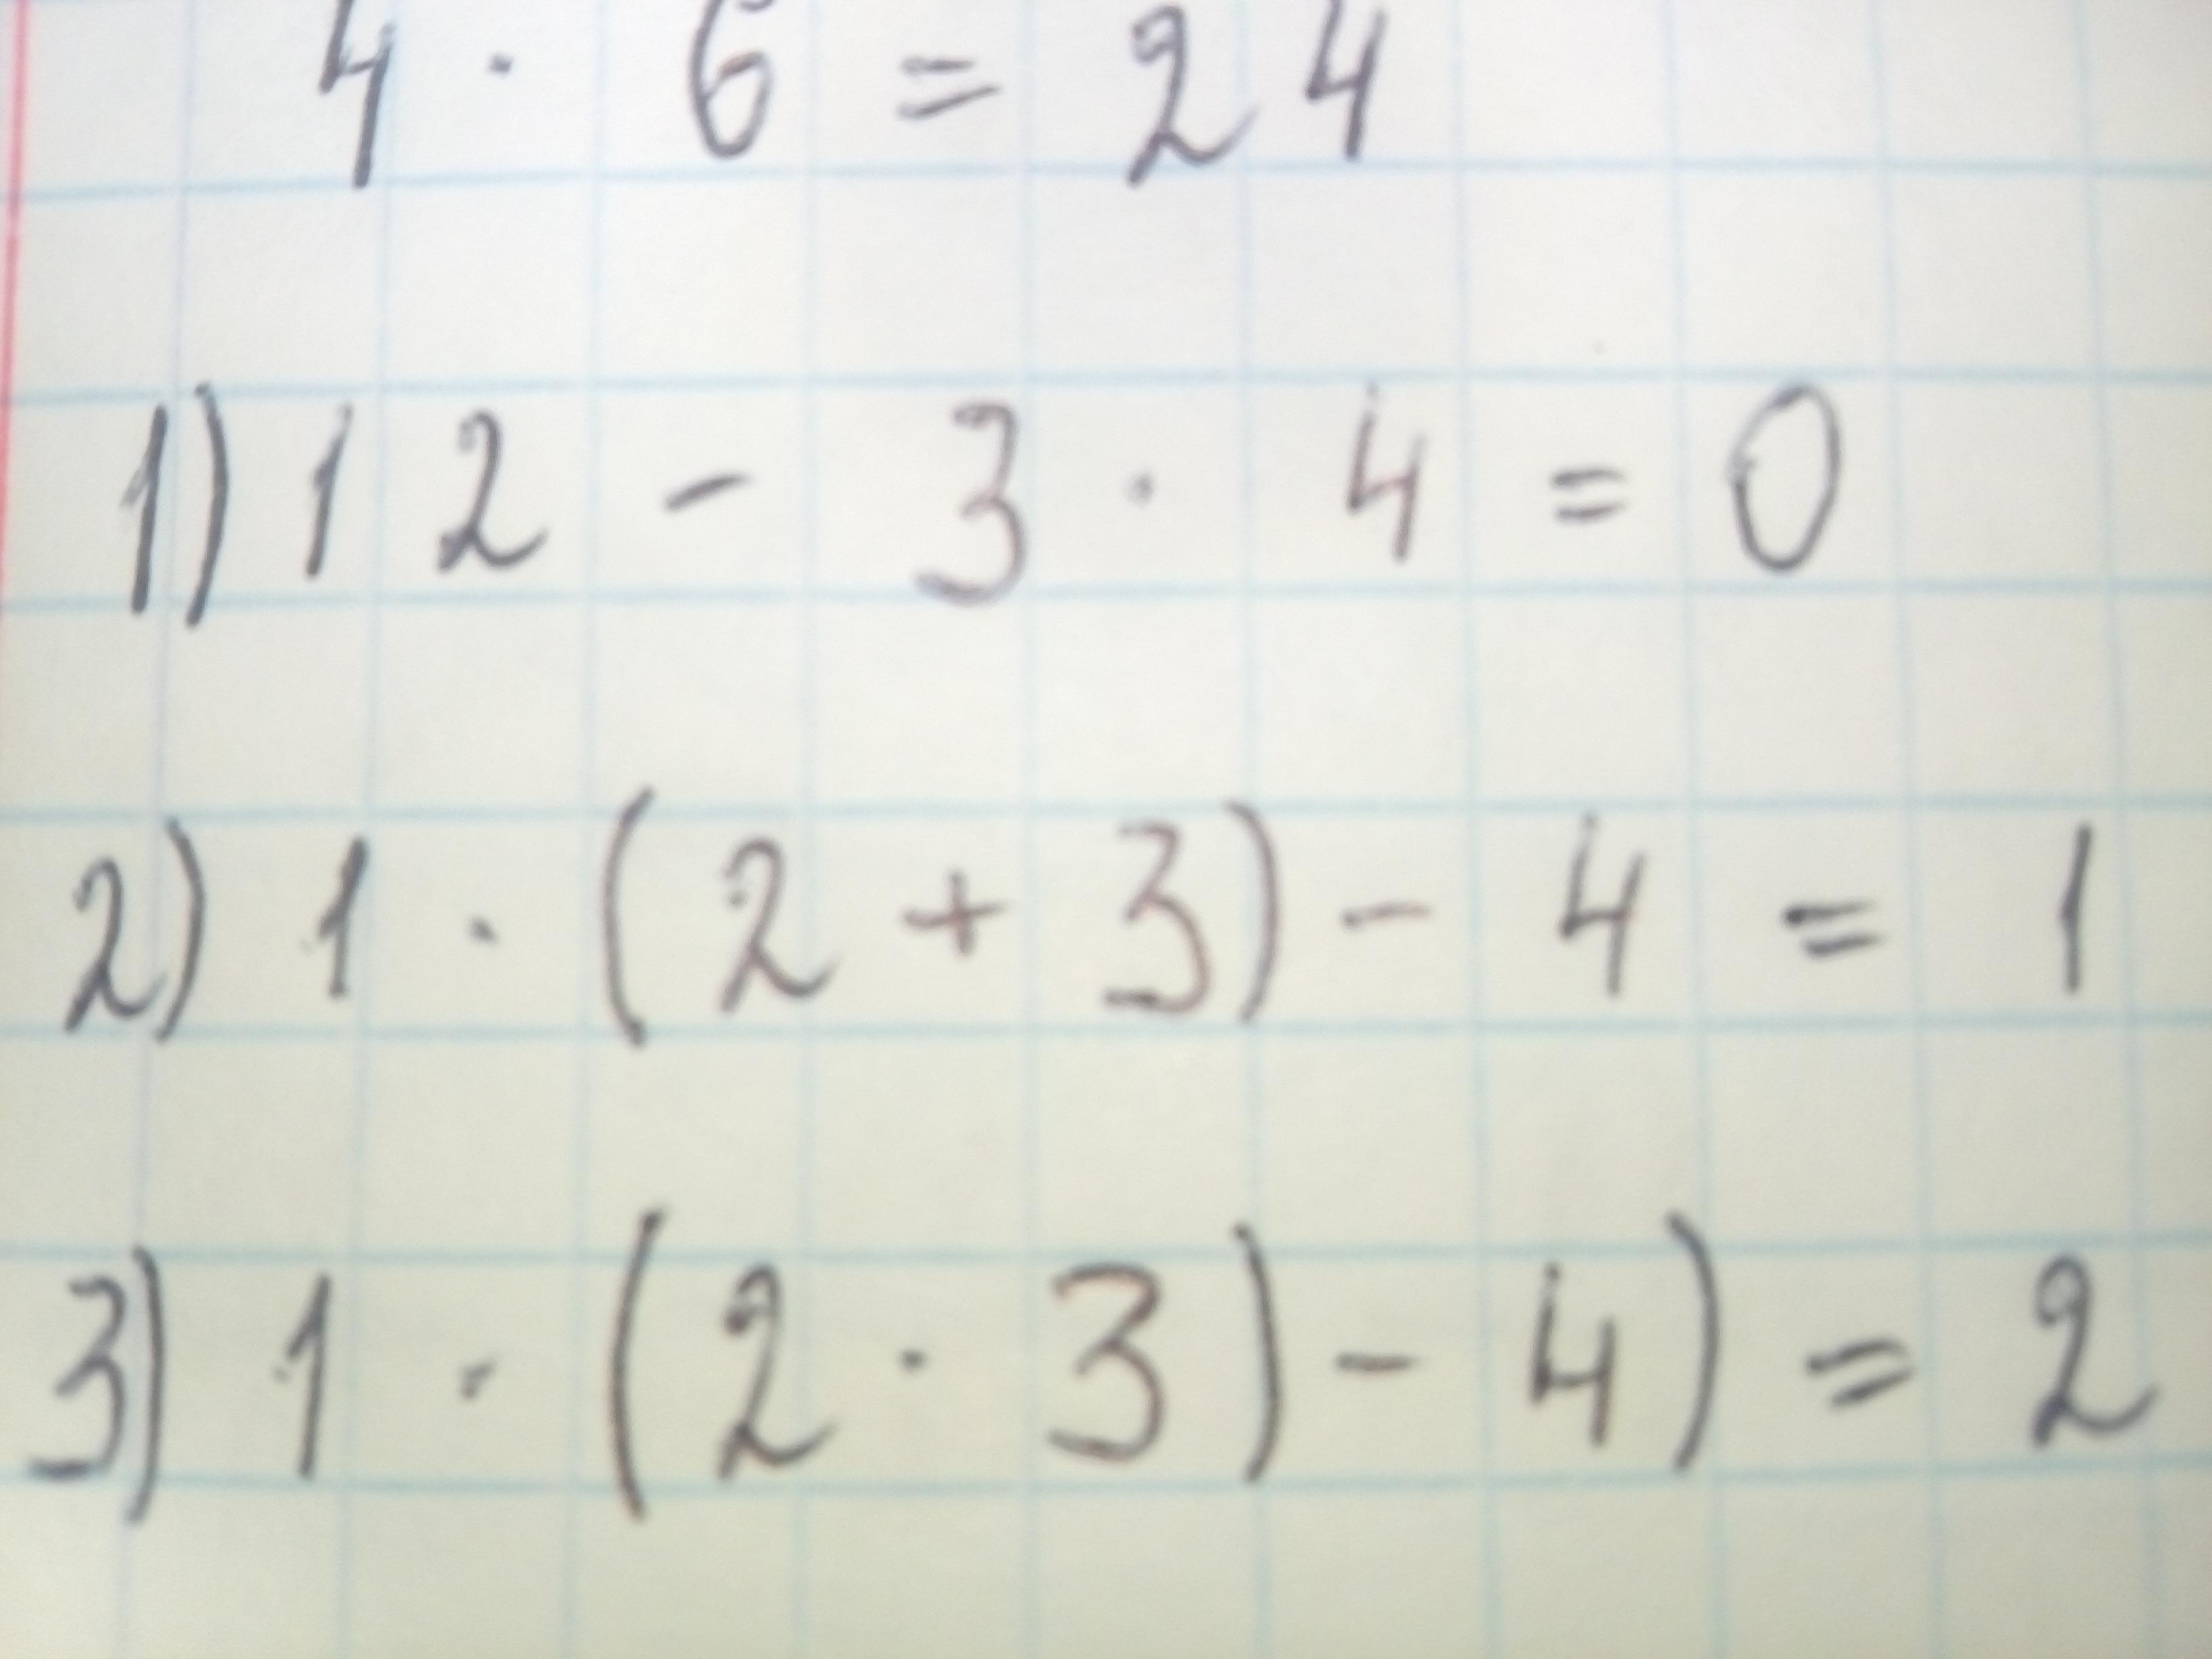 4 · 6 = 24
1) 12 - 3 · 4 = 0
2) 1 · (2 + 3) - 4 = 1
3) 1 · (2 · 3) - 4) = 2